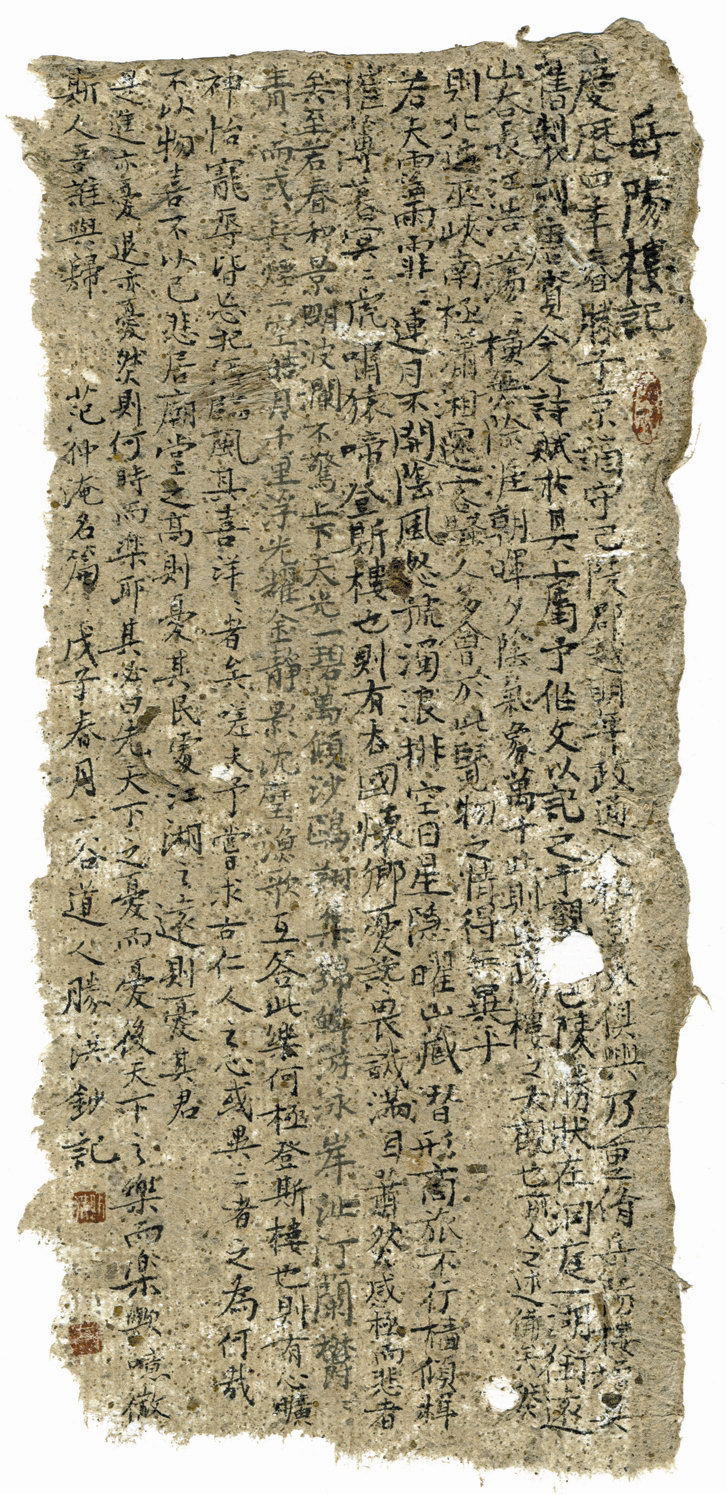 岳陽樓記
慶歷四年春滕子京謫守巴陵郡越明年政通人和百廢俱興乃重脩岳陽樓增其
舊製刻唐賢今人詩賦於其上屬予作文以記之予觀巴陵勝狀在洞庭一湖銜遠
山吞長江浩〻蕩〻橫無際涯朝暉夕陰氣象萬千此則岳陽樓之大觀也前人之述備矣然
則北通巫峽南極瀟湘遷客騷人多會於此覽物之情得無異乎
若夫霪雨霏〻連月不開陰風怒號濁浪排空日星隱曜山藏替形商旅不行檣傾楫
摧薄暮冥〻虎嘯猿啼登斯樓也則有去國懷鄉憂讒畏譏滿目蕭然感極而悲者
矣至若春和景明波瀾不驚上下天光一碧萬傾沙鷗翔集錦鱗游泳岸沚汀蘭鬱
青〻而或長煙一空皓月千里浮光耀金靜影沈璧漁歌互答此樂何極登斯樓也則有心曠
神怡寵辱皆忘把酒臨風其喜洋〻者矣嗟夫予嘗求古仁人之心或異二者之為何哉
不以物喜不以己悲居廟堂之高則憂其民處江湖之遠則憂其君
是進亦憂退亦憂然則何時而樂耶其必曰先天下之憂而憂後天下之樂而樂歟噫微
斯人吾誰與歸 范仲淹名篇 戊子春月一谷道人勝洪鈔記